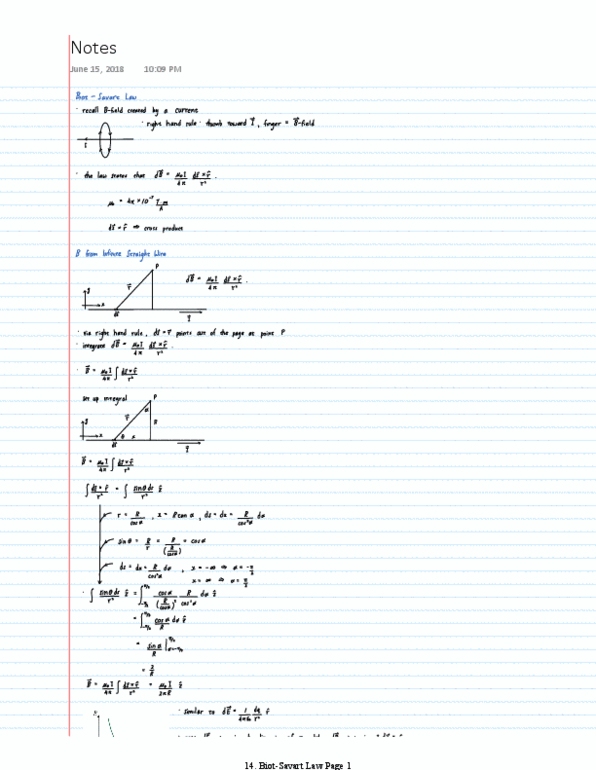 Notes
June 15, 2018 10:09 PM
Biot - Savart Law
· recall B-field created by a current
· right hand rule: thumb toward I, finger = B-field
I
· the law states that dB⃗ = μ₀I/4π ds⃗ × r̂/r² .
μ₀ = 4π × 10⁻⁷ T·m/A
ds⃗ × r̂ ⇒ cross product
B from Infinite Straight Wire
P
dB⃗ = μ₀I/4π ds⃗ × r̂/r² .
y r⃗
x
ds I
· via right hand rule, ds⃗ × r̂ points out of the page at point P
· integrate dB⃗ = μ₀I/4π ds⃗ × r̂/r² .
· B⃗ = μ₀I/4π ∫ ds⃗ × r̂/r²
set up integral
P
α
y r⃗ R
x θ x
ds I
B⃗ = μ₀I/4π ∫ ds⃗ × r̂/r²
∫ ds⃗ × r̂/r² = ∫ sinθ ds/r² ẑ
r = R/cosα , x = R tanα , ds = dx = R/cos²α dα
sinθ = R/r = R/(R/cosα) = cosα
ds = dx = R/cos²α dα , x = -∞ ⇒ α = -π/2
x = ∞ ⇒ α = π/2
· ∫ sinθ ds/r² ẑ = ∫_{-π/2}^{π/2} cosα/(R/cosα)² R/cos²α dα ẑ
= ∫_{-π/2}^{π/2} cosα/R dα ẑ
= sinα/R |_{α=-π/2}^{π/2}
= 2/R
B⃗ = μ₀I/4π ∫ ds⃗ × r̂/r² = μ₀I/2πR ẑ
· similar to dE⃗ = 1/4πε₀ dq/r² r̂
14. Biot-Savart Law Page 1